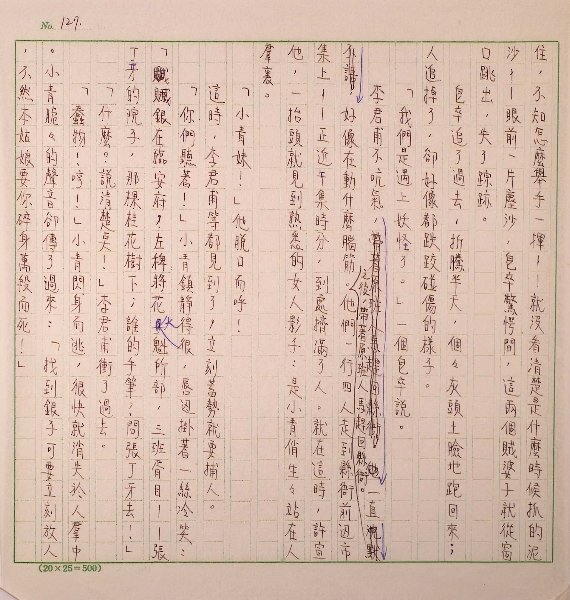 No. 127.
住，不知怎麼舉手一揮！就沒看清楚是什麼時候抓的泥
沙！！眼前一片塵沙，皂卒驚愕間，這兩個賊婆子就從窗
口跳出，失了踪跡。
皂卒追了過去，折騰半天，個々灰頭土臉地跑回來；
人追掉了，卻好像都跌跤碰傷的樣子。
「我們是遇上妖怪了。」一個皂卒說。
李君甫不吭氣，
他一直沈默
之後，帶著原班人馬趕回縣衙。
不語，好像在動什麼腦筋。他們一行四人走到縣衙前迎市
集上！！正近午集時分，到處擠滿了人。就在這時，許宣
他，一抬頭就見到熟悉的女人影子：是小青俏生々站在人
羣裏。
「小青妹！」他脫口而呼！
這時，李君甫等都見到了，立刻蓄勢就要捕人。
「你們聽著！」小青鎮靜得很，唇迎掛著一絲冷笑：
「贓銀在臨安府，左稗將花魁所部，三班眉目！！張
丁牙的院子，那棵桂花樹下；誰的手筆，問張丁牙去！」
「什麼？說清楚臭！」李君甫衝了過去。
「蠢物！哼！」小青閃身而逃，很快就消失於人羣中
。小青脆々的聲音卻傳了過來：「找到銀子可要立刻放人
，不然本姑娘要你碎身萬段而死！」
(20×25=500)